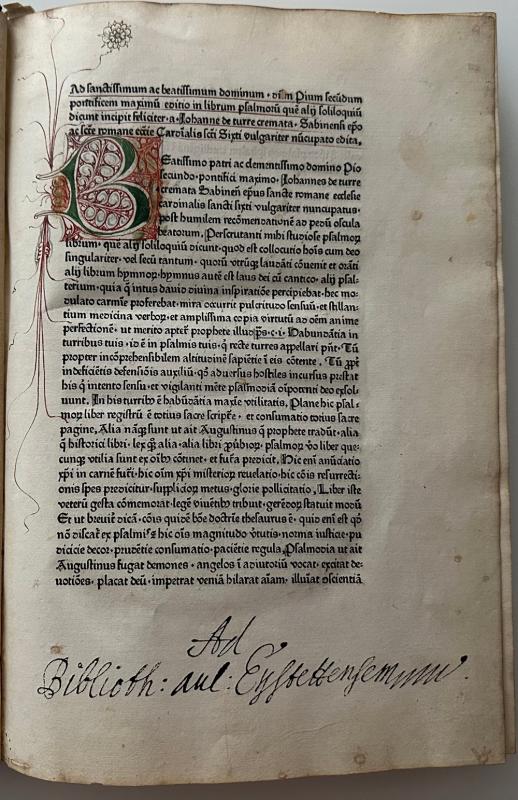 Ad sanctissimum ac beatissimum dominum · dnm Pium secundum
pontificem maximū editio in librum psalmorū quē alij soliloquiū
dicunt incipit feliciter · a · Iohanne de turre cremata · Sabinensi epō
ac scte romane eccīe Cardīalis sctī Sixti vulgariter nūcupato edita.
Beatissimo patri ac clementissimo domino Pio
secundo · pontifici maximo · Iohannes de turre
cremata Sabineñ epūs sancte romane ecclesie
cardinalis sancti sixti vulgariter nuncupatus ·
post humilem recōmendationē ad pedū oscula
beatorum. Perscrutanti mihi studiose psalmoꝝ
librum · quē alij soliloquiū dicunt · quod est collocutio hoīs cum deo
singulariter · vel secū tantum · quorū vtrūqꝫ laudāti cōuenit et orāti
alij librum hymnoꝝ · hymnus autē est laus dei cū cantico · alij psal-
terium · quia q̄ intus dauid diuina inspiratiōe percipiebat · hec mo-
dulato carmīe proferebat · mira occurrit pulcritudo sensuū · et stillan-
tium medicina verboꝝ · et amplissima copia virtutū ad oēm anime
perfectionē · ut merito aptet prophete illud ps · c · i · Habundātia in
turribus tuis · id ē in psalmis tuis · q̄ recte turres appellari pñt · Tū
propter incōprehensibilem altitudinē sapiētie ī eis cōtente · Tū ꝓpt
indeficiētis defensiōis auxiliū · qd̄ aduersus hostiles incursus prestat
his q̄ intento sensu · et vigilanti mēte psalmodiā oīpotenti deo exsol-
uunt. In his turribꝰ ē habūdātia maxīe vtilitatis. Plane hic psal-
moꝝ liber registrū ē totius sacre scripr̄e · et consumatio totius sacre
pagine. Alia nāqꝫ sunt ut ait Augustinus q̄ prophete tradūt · alia
q̄ historici libri · lex q̄ꝫ alia · alia libri ꝓuerbioꝝ · psalmoꝝ vō liber que-
cunqꝫ vtilia sunt ex oībꝫ cōtinet · et futr̄a predicit. Hic enī anūciatio
xpī in carnē futr̄i · hic oīm xpī misterioꝝ reuelatio · hic cōis resurrecti-
onis spes predicitur · supplicioꝝ metus · glorie pollicitatio. Liber iste
veterū gesta cōmemorat · legē viuētibꝫ tribuit · gerēdoꝝ statuit modū
Et ut breuiꝰ dicā · cōis quidē bōe doctrīe thesaurus ē · quid enī est qd̄
nō discat̄ ex psalmis · hic oīs magnitudo v̄tutis · norma iusticie · pu
dicicie decor · prudētie consumatio · paciētie regula · Psalmodia ut ait
Augustinus fugat demones · angelos ī adiutoriū vocat · excitat de-
uotiōes · placat deū · impetrat veniā hilarat aīam · illuīat ɔscientiā
Ad
Biblioth: aul: Eystettensem